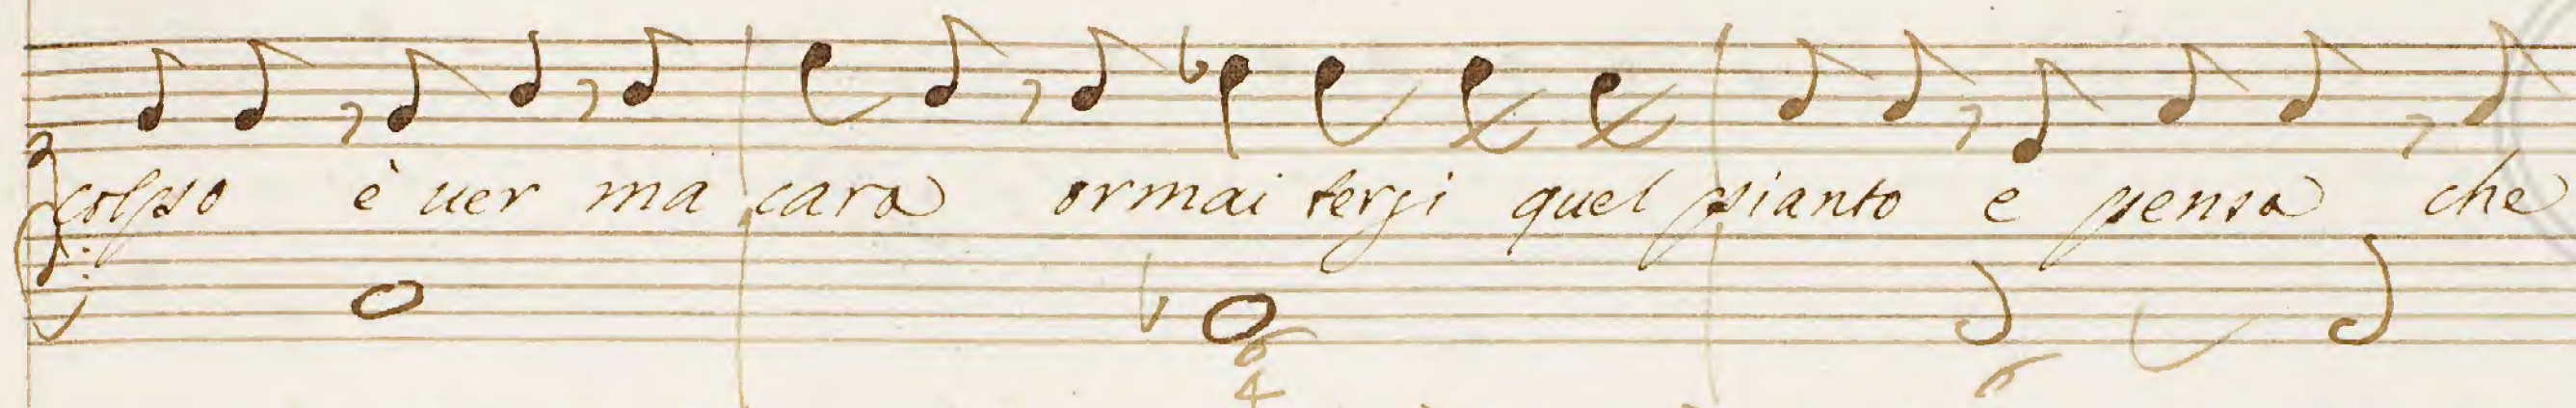 colpo è uer ma cara ormai tergi quel pianto e pensa che
6
4
6